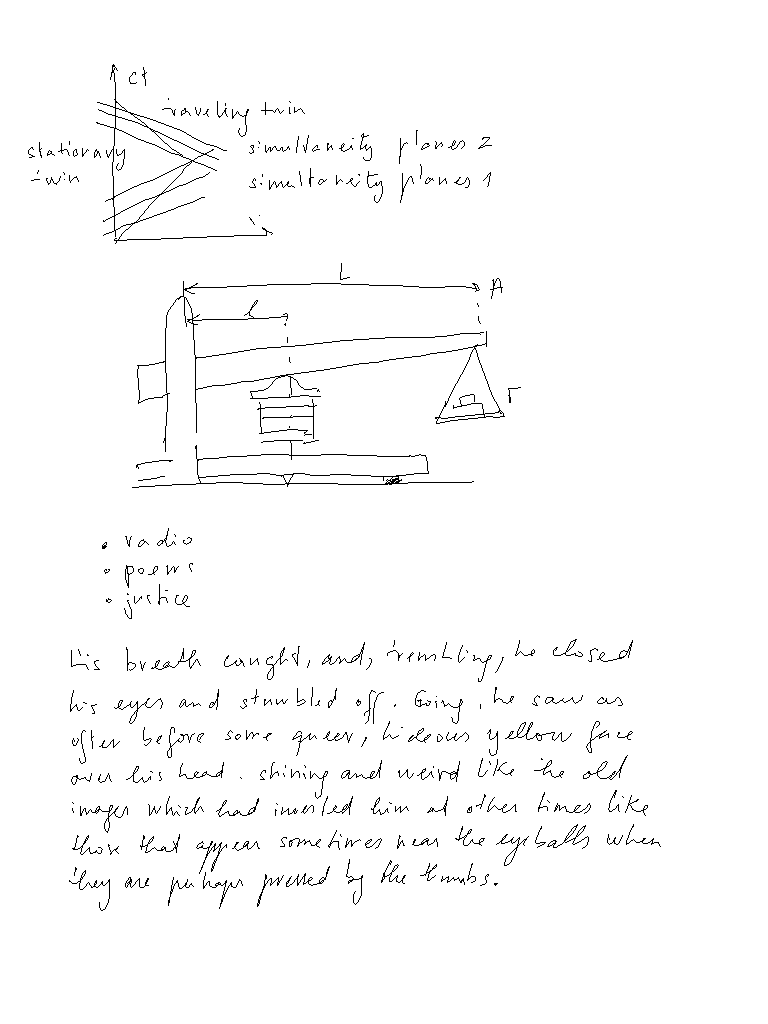 ct
traveling twin
stationary
simultaneity planes 2
twin
simultaneity planes 1
L
A
l
r
• radio
• poems
• justice
His breath caught, and, trembling, he closed
his eyes and stumbled off. Going, he saw as
often before some queer, hideous yellow face
over his head. shining and weird like the old
images which had invested him at other times like
those that appear sometimes near the eyeballs when
they are perhaps pressed by the thumbs.